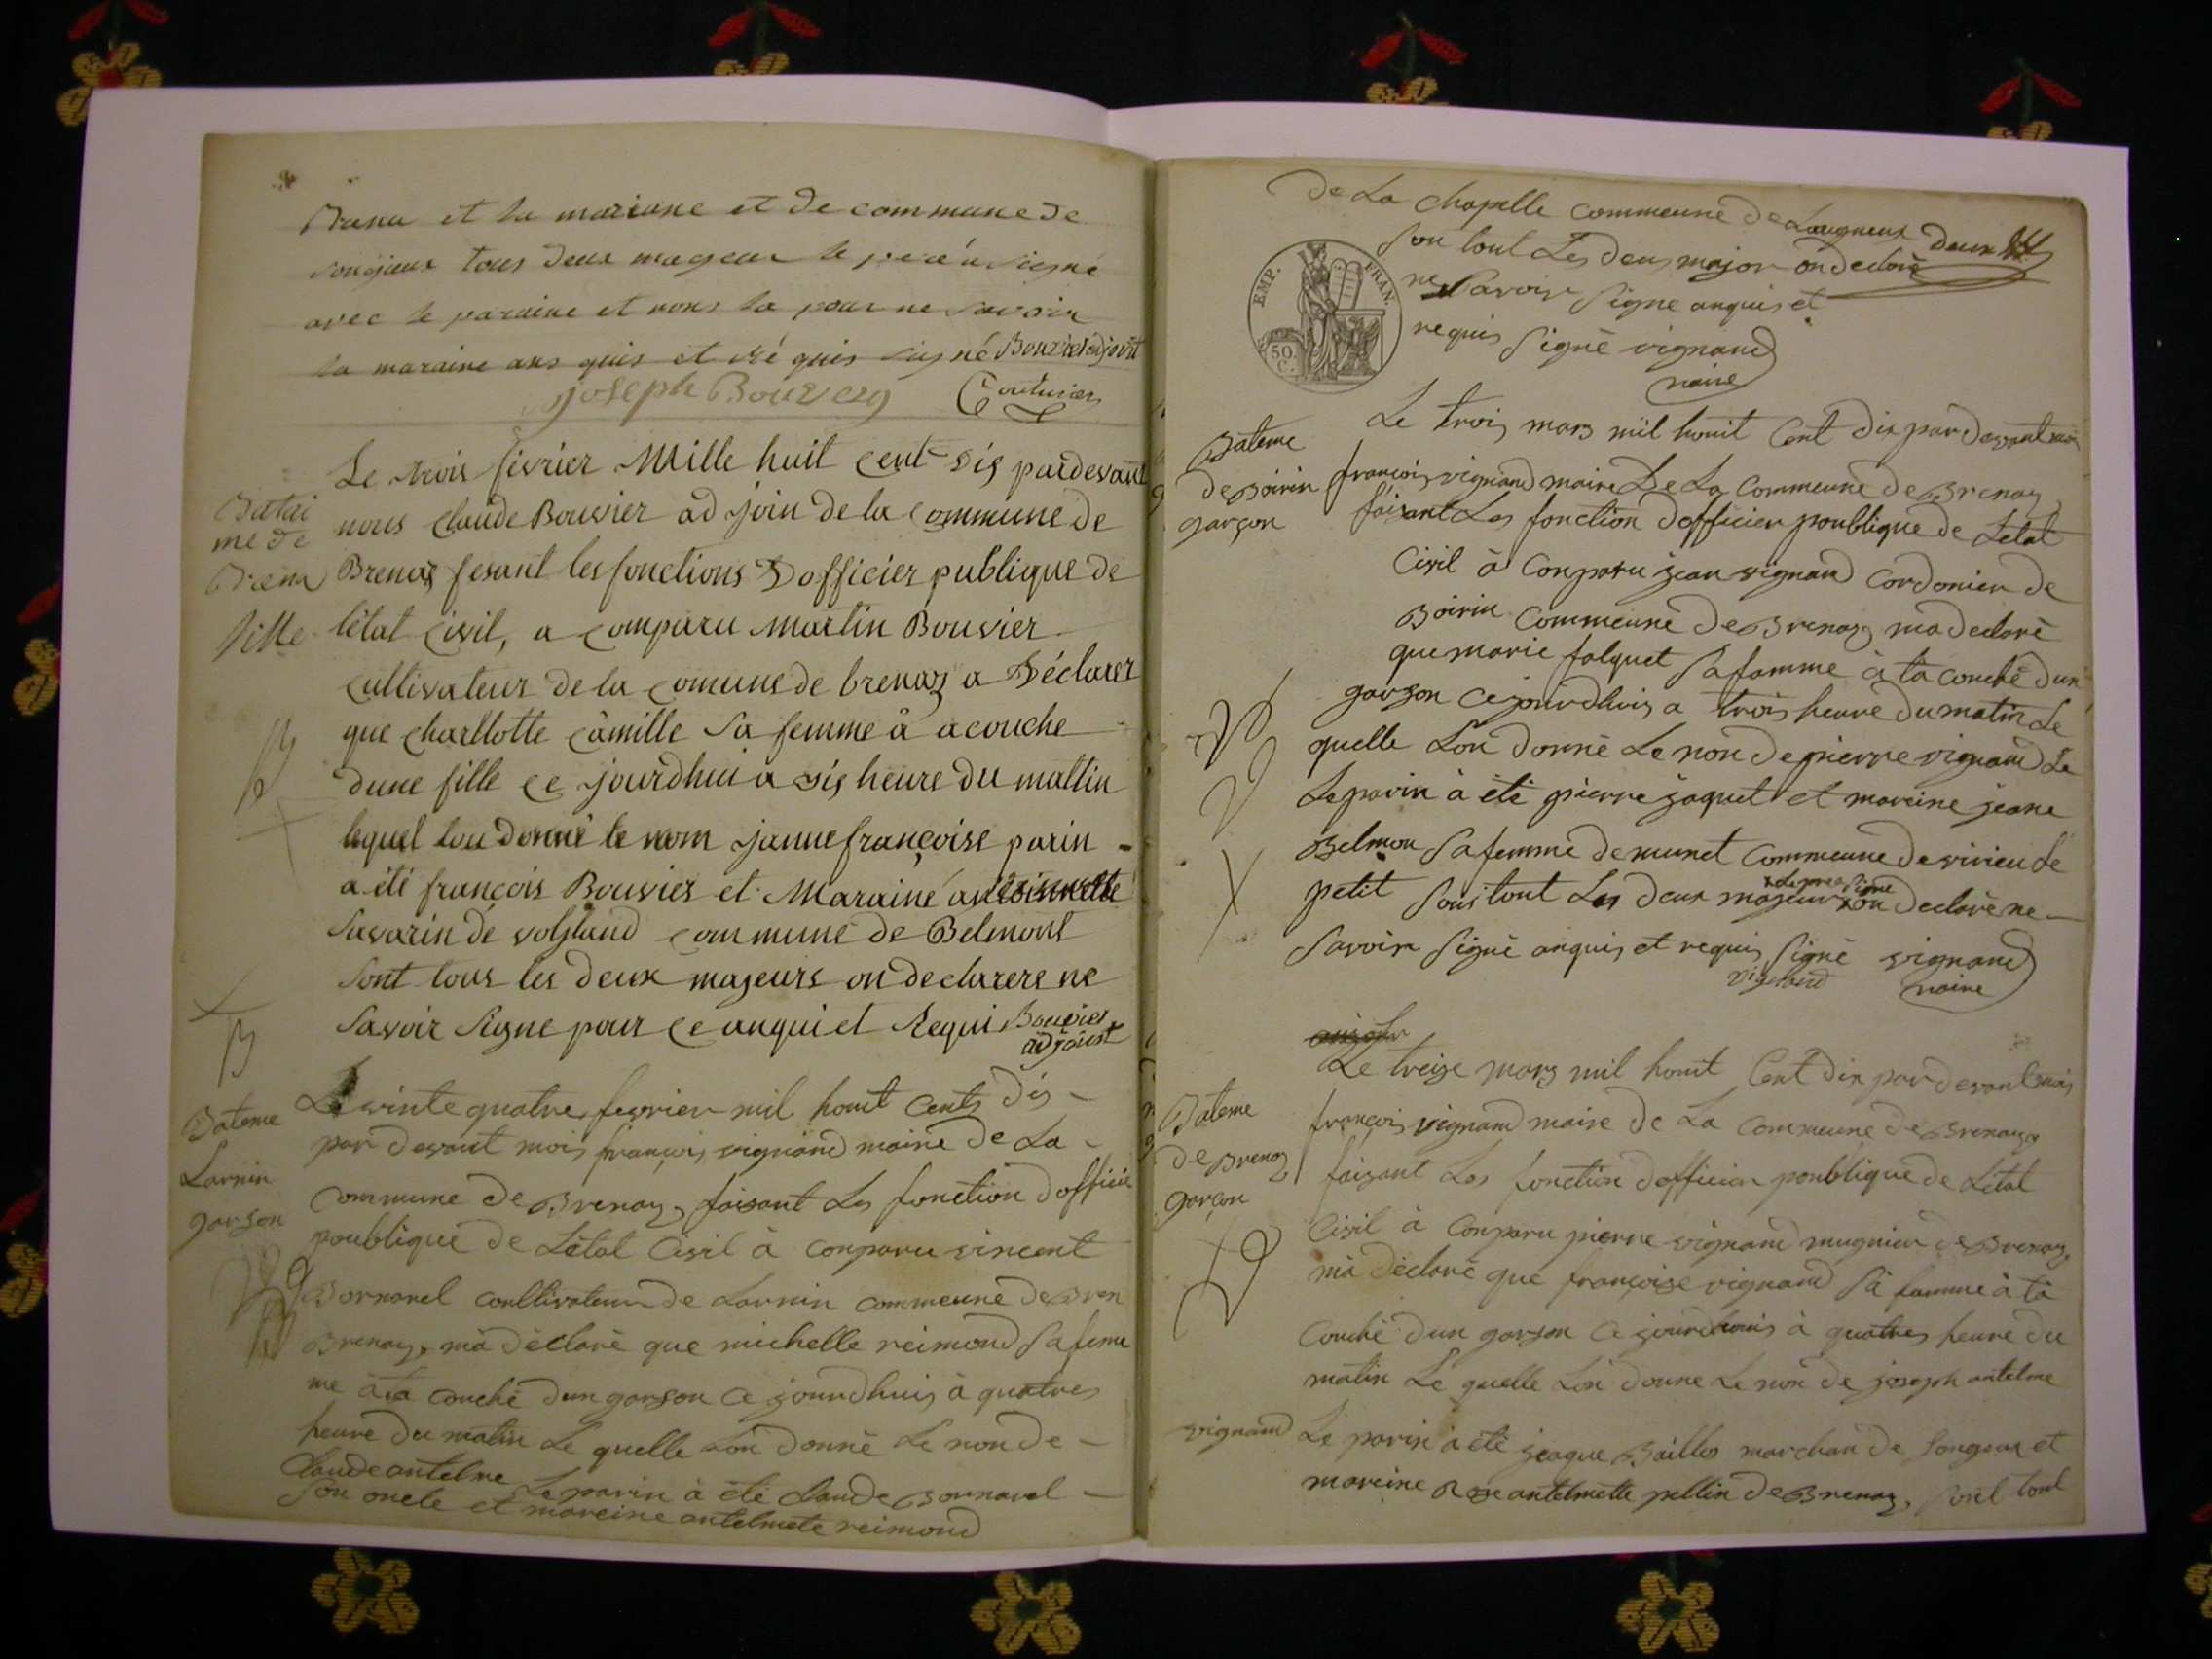 et la mariane et de commune de
songieux tous deux mageur le pere a signé
avec le paraine et nous la pour ne savoir
la maraine ans quis et ré quis signé Bouvier adjoint
joseph Bouvery Couturier
Le trois février Mille huit cent dis pardevant
Batai
me de
fille
nous Claude Bouvier ad join de la Commune de
Brenaz fesant les fonctions Dofficier publique de
létat Civil, a Comparu Martin Bouvier
Cultivateur de la Comune de brenaz a Déclarer
que Charllotte Camille Sa femme à acouche
dune fille Ce jourdhui a dis heure du mattin
lequel lon Donné le nom janne françoise parin
a été françois Bouvier et Maraine
Savarin de commune de Belmont
Sont tous les deux majeurs on declarere ne
Savoir Signe pour Ce anqui et Requi Bouvier
adjoint
Bateme
Larnin
garson
Le vinte quatre fevrier mil houit Cents dis
par devant mois françois vignand maire de La
Commune de Brenaz, faisant Les fonction dofficie
poublique de Létat Civil à Conparu vincent
Bornarel coultivateur de Larnin commeune de Bren
Brenaz, mà déclaré que michelle reimond Sa feme
me à ta couché dun garson Ce jourdhuis à quatres
heure du matin Le quelle Lon donné Le non de
Claude antelme Le parin à été Claude Bornarel
Son oncle et mareine antelmete reimond
De La Chapelle Commeune de Lougneux deux
Son tout Les deux major on declaré
ne Savoir Signe anquis et
requis Signé vignand
maire
EMP. FRAN.
50
C.
Bateme
de Boirin
garçon
Le trois mars mil houit Cent dix par devant mois
françois vignand maire De La Commeune de Brenaz
faisant Les fonction dofficier poublique de Létat
Civil à Conparu jean vignand Cordonier de
Boirin Commeune de Brenaz, ma declaré
que marie falquet Sa famme à ta couché dun
garson Ce jourdhuis a trois heure du matin Le
quelle Lon donné Le non de pierre vignand Le
Le parin à été pierre jaquet et mareine jeane
Belmon Sa femme de munet Commeune de virieu Le
petit Sons tout Les deux majeur on declaré ne
Savoir Signé anquis et requis Signé vignand
vignand maire
Bateme
de Brenaz
garçon
Le treize mars mil houit Cent dix par devant mois
françois vignand maire de La Commeune de Brenaz
faizant Les fonction dofficier poublique de Létat
Civil à Conparu pierre vignand mugnier de Brenaz,
mà déclaré que françoise vignand Sà famme à tà
Couché dun garson Ce jourdhuis à quatres heure du
matin Le quelle Lon donne Le non de joseph antelme
vignand
Le parin à été jeaque Baillos marchan de Songeux et
mareine Rose antelmette pellin de Brenaz, Sont tout